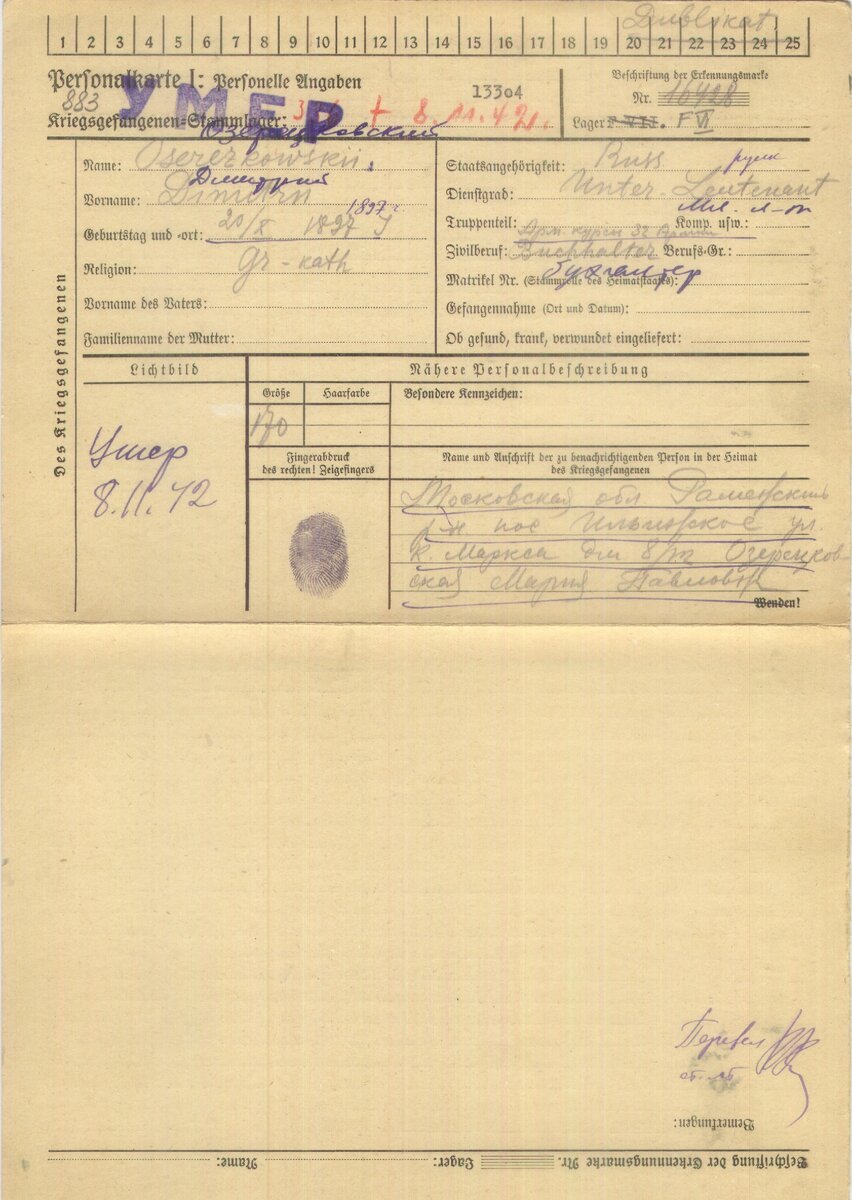 Dublikat.
1 2 3 4 5 6 7 8 9 10 11 12 13 14 15 16 17 18 19 20 21 22 23 24 25
Personalkarte I: Personelle Angaben
883
УМЕР
13304
Beschriftung der Erkennungsmarke
Nr. 16428
Kriegsgefangenen-Stammlager: + 8.11.42.
Lager F VI
Озерецковский
Name: Osererkowskii
Дмитрий
Vorname: Dimitrii
1897 г
Geburtstag und -ort: 20/X 1897
Religion: Gr-kath
Vorname des Vaters:
Familienname der Mutter:
Des Kriegsgefangenen
Staatsangehörigkeit: Russ русск
Dienstgrad: Unter-Leutenant
Мл. л-т
Truppenteil: Арм. курсы 32 Армии Komp. usw.:
Zivilberuf: Buchhalter Berufs-Gr.:
бухгалтер
Matrikel Nr. (Stammrolle des Heimatstaats):
Gefangennahme (Ort und Datum):
Ob gesund, krank, verwundet eingeliefert:
Lichtbild
Умер
8.11.42
Nähere Personalbeschreibung
Größe
Haarfarbe
Besondere Kennzeichen:
170
Fingerabdruck
des rechten! Zeigefingers
Name und Anschrift der zu benachrichtigenden Person in der Heimat
des Kriegsgefangenen
Московская обл Раменский
р-н пос Ильинское ул.
К. Маркса дом 8/ Озерецков-
ская Мария Павловна
Wenden!
Перевел
ст. лт
Bemerkungen:
Beschriftung der Erkennungsmarke Nr. Lager: Name: